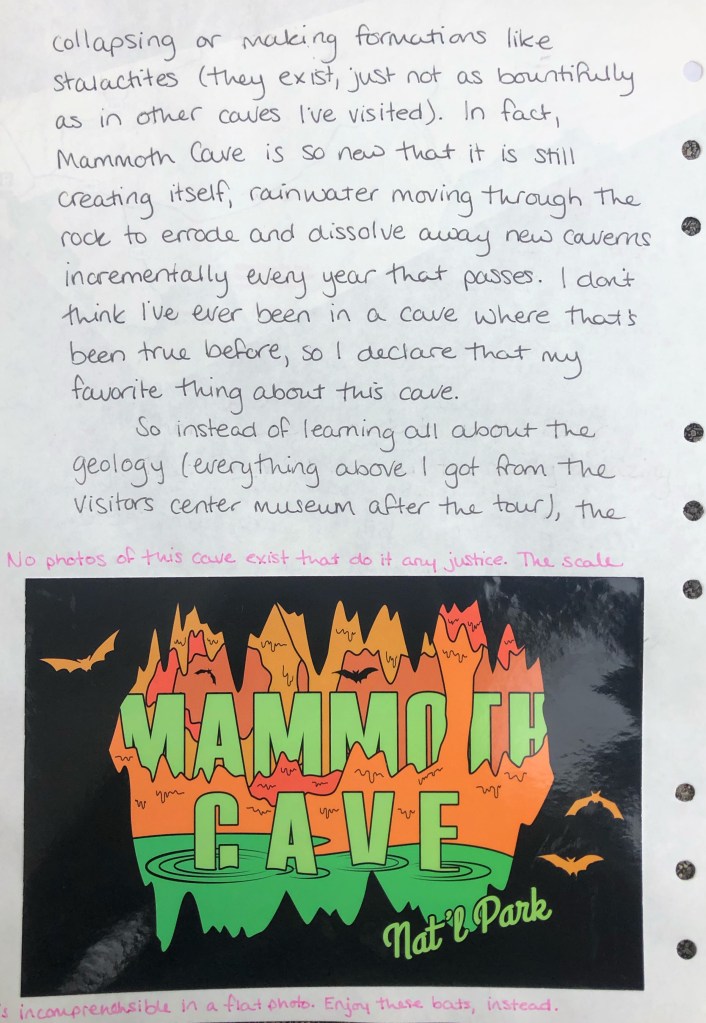 collapsing or making formations like
stalactites (they exist, just not as bountifully
as in other caves I've visited). In fact,
Mammoth Cave is so new that it is still
creating itself, rainwater moving through the
rock to errode and dissolve away new caverns
incrementally every year that passes. I don't
think I've ever been in a cave where that's
been true before, so I declare that my
favorite thing about this cave.
So instead of learning all about the
geology (everything above I got from the
visitors center museum after the tour), the
No photos of this cave exist that do it any justice. The scale
MAMMOTH
CAVE
Nat'l Park
's incomprenehsible in a flat photo. Enjoy these bats, instead.